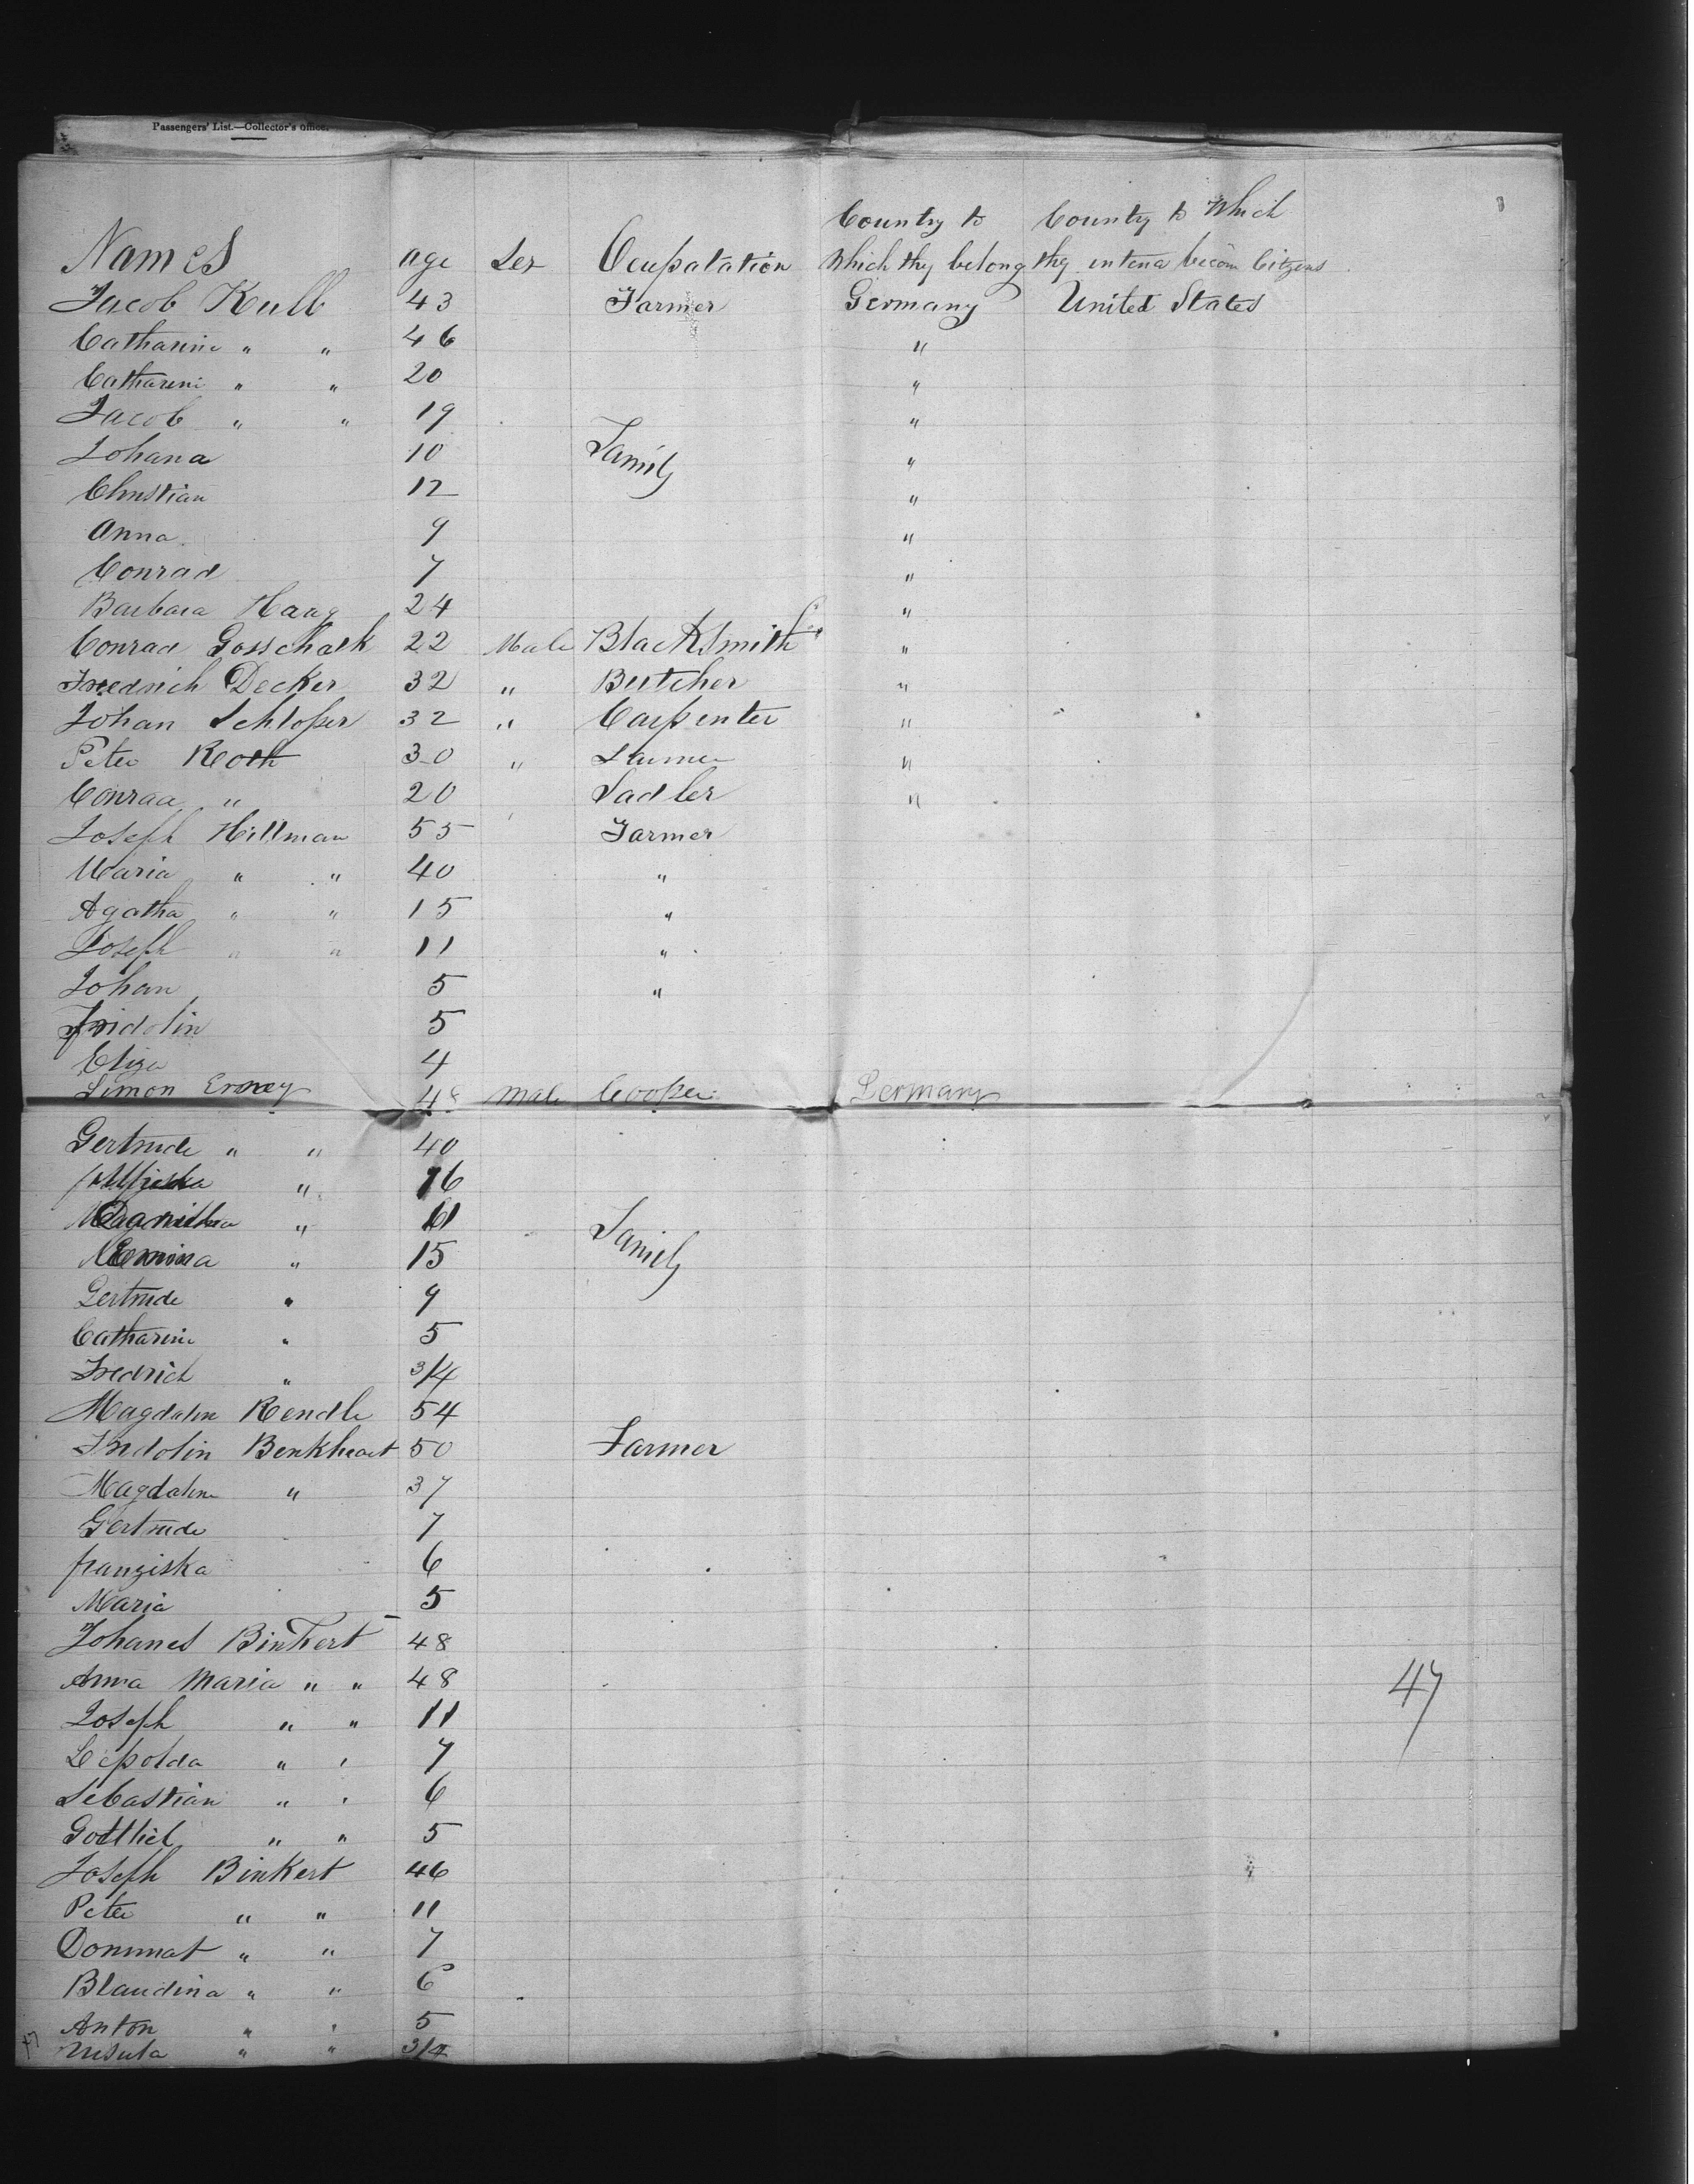 Passengers' List.—Collector's Office.
Names age Sex Ocupatation Country to which thy belong County to which thy intend becom Citizens
Jacob Kull 43 Farmer Germany United States
Catharine " " 46 "
Catharine " " 20 "
Jacob " " 19 "
Johana 10 Family "
Christian 12 "
Anna 9 "
Conrad 7 "
Barbara Haag 24 "
Conrad Gosschalk 22 Male Blacksmith "
Friedrich Decker 32 " Butcher "
Johan Schloser 32 " Carpenter "
Peter Roth 30 " "
Conrad " 20 Sadler "
Joseph Hillman 55 Farmer
Maria " " 40 "
Agatha " " 15 "
Joseph " " 11 "
Johan 5 "
Fridolin 5
Eliza 4
Simon 48 Male Cooper Germany
Gertrude " " 40
" 16
" 11
" 15 Family
Gertrude " 9
Catharine " 5
Fredrich " 3/4
Magdalen Rendle 54
Fridolin Benkheart 50 Farmer
Magdalen " 37
Gertrude 7
franziska 6
Maria 5
Johanes Binkert 48
Anna Maria " " 48 47
Joseph " " 11
Lepolda " " 7
Sebastian " " 6
Gottlieb " " 5
Joseph Binkert 46
Peter " " 11
Donimat " " 7
Blandina " " 6
Anton " " 5
Ursula " " 3/4